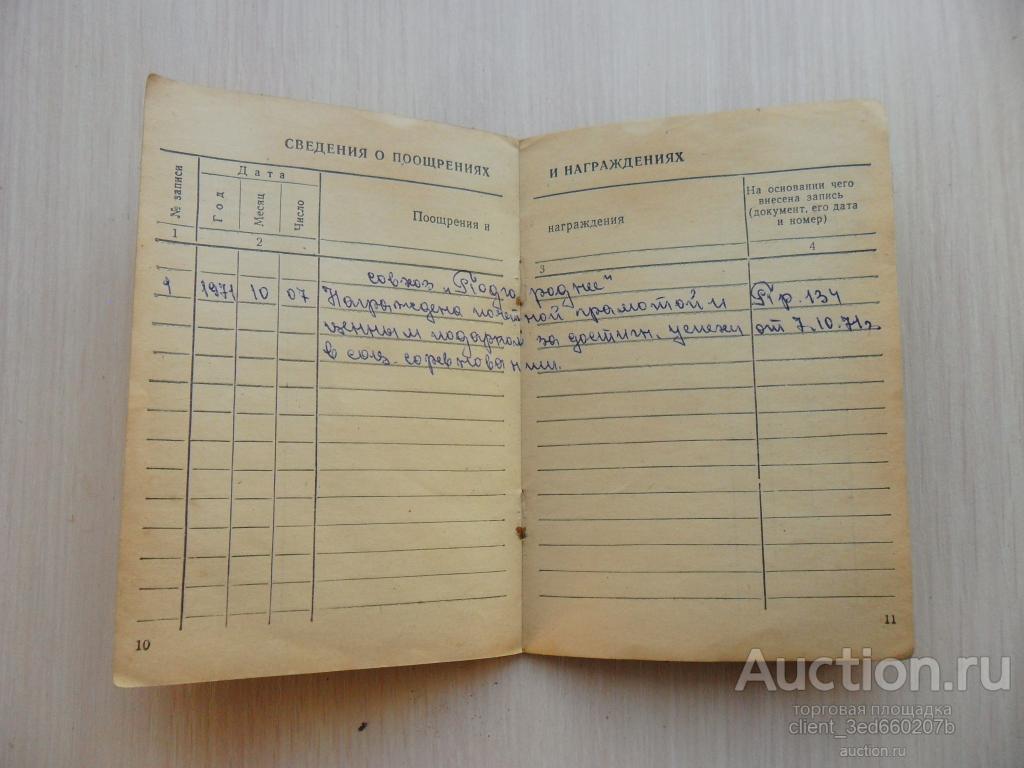 СВЕДЕНИЯ О ПООЩРЕНИЯХ И НАГРАЖДЕНИЯХ
№ записи
Дата
Год
Месяц
Число
Поощрения и награждения
На основании чего
внесена запись
(документ, его дата
и номер)
1 2 3 4
совхоз „Подгороднее"
1 1971 10 07 Награждена почётной грамотой и Пр. 134
ценным подарком за достигн. успехи от 7.10.71г
в соц. соревновании.
10
11
Auction.ru
торговая площадка
client_3ed660207b
auction.ru